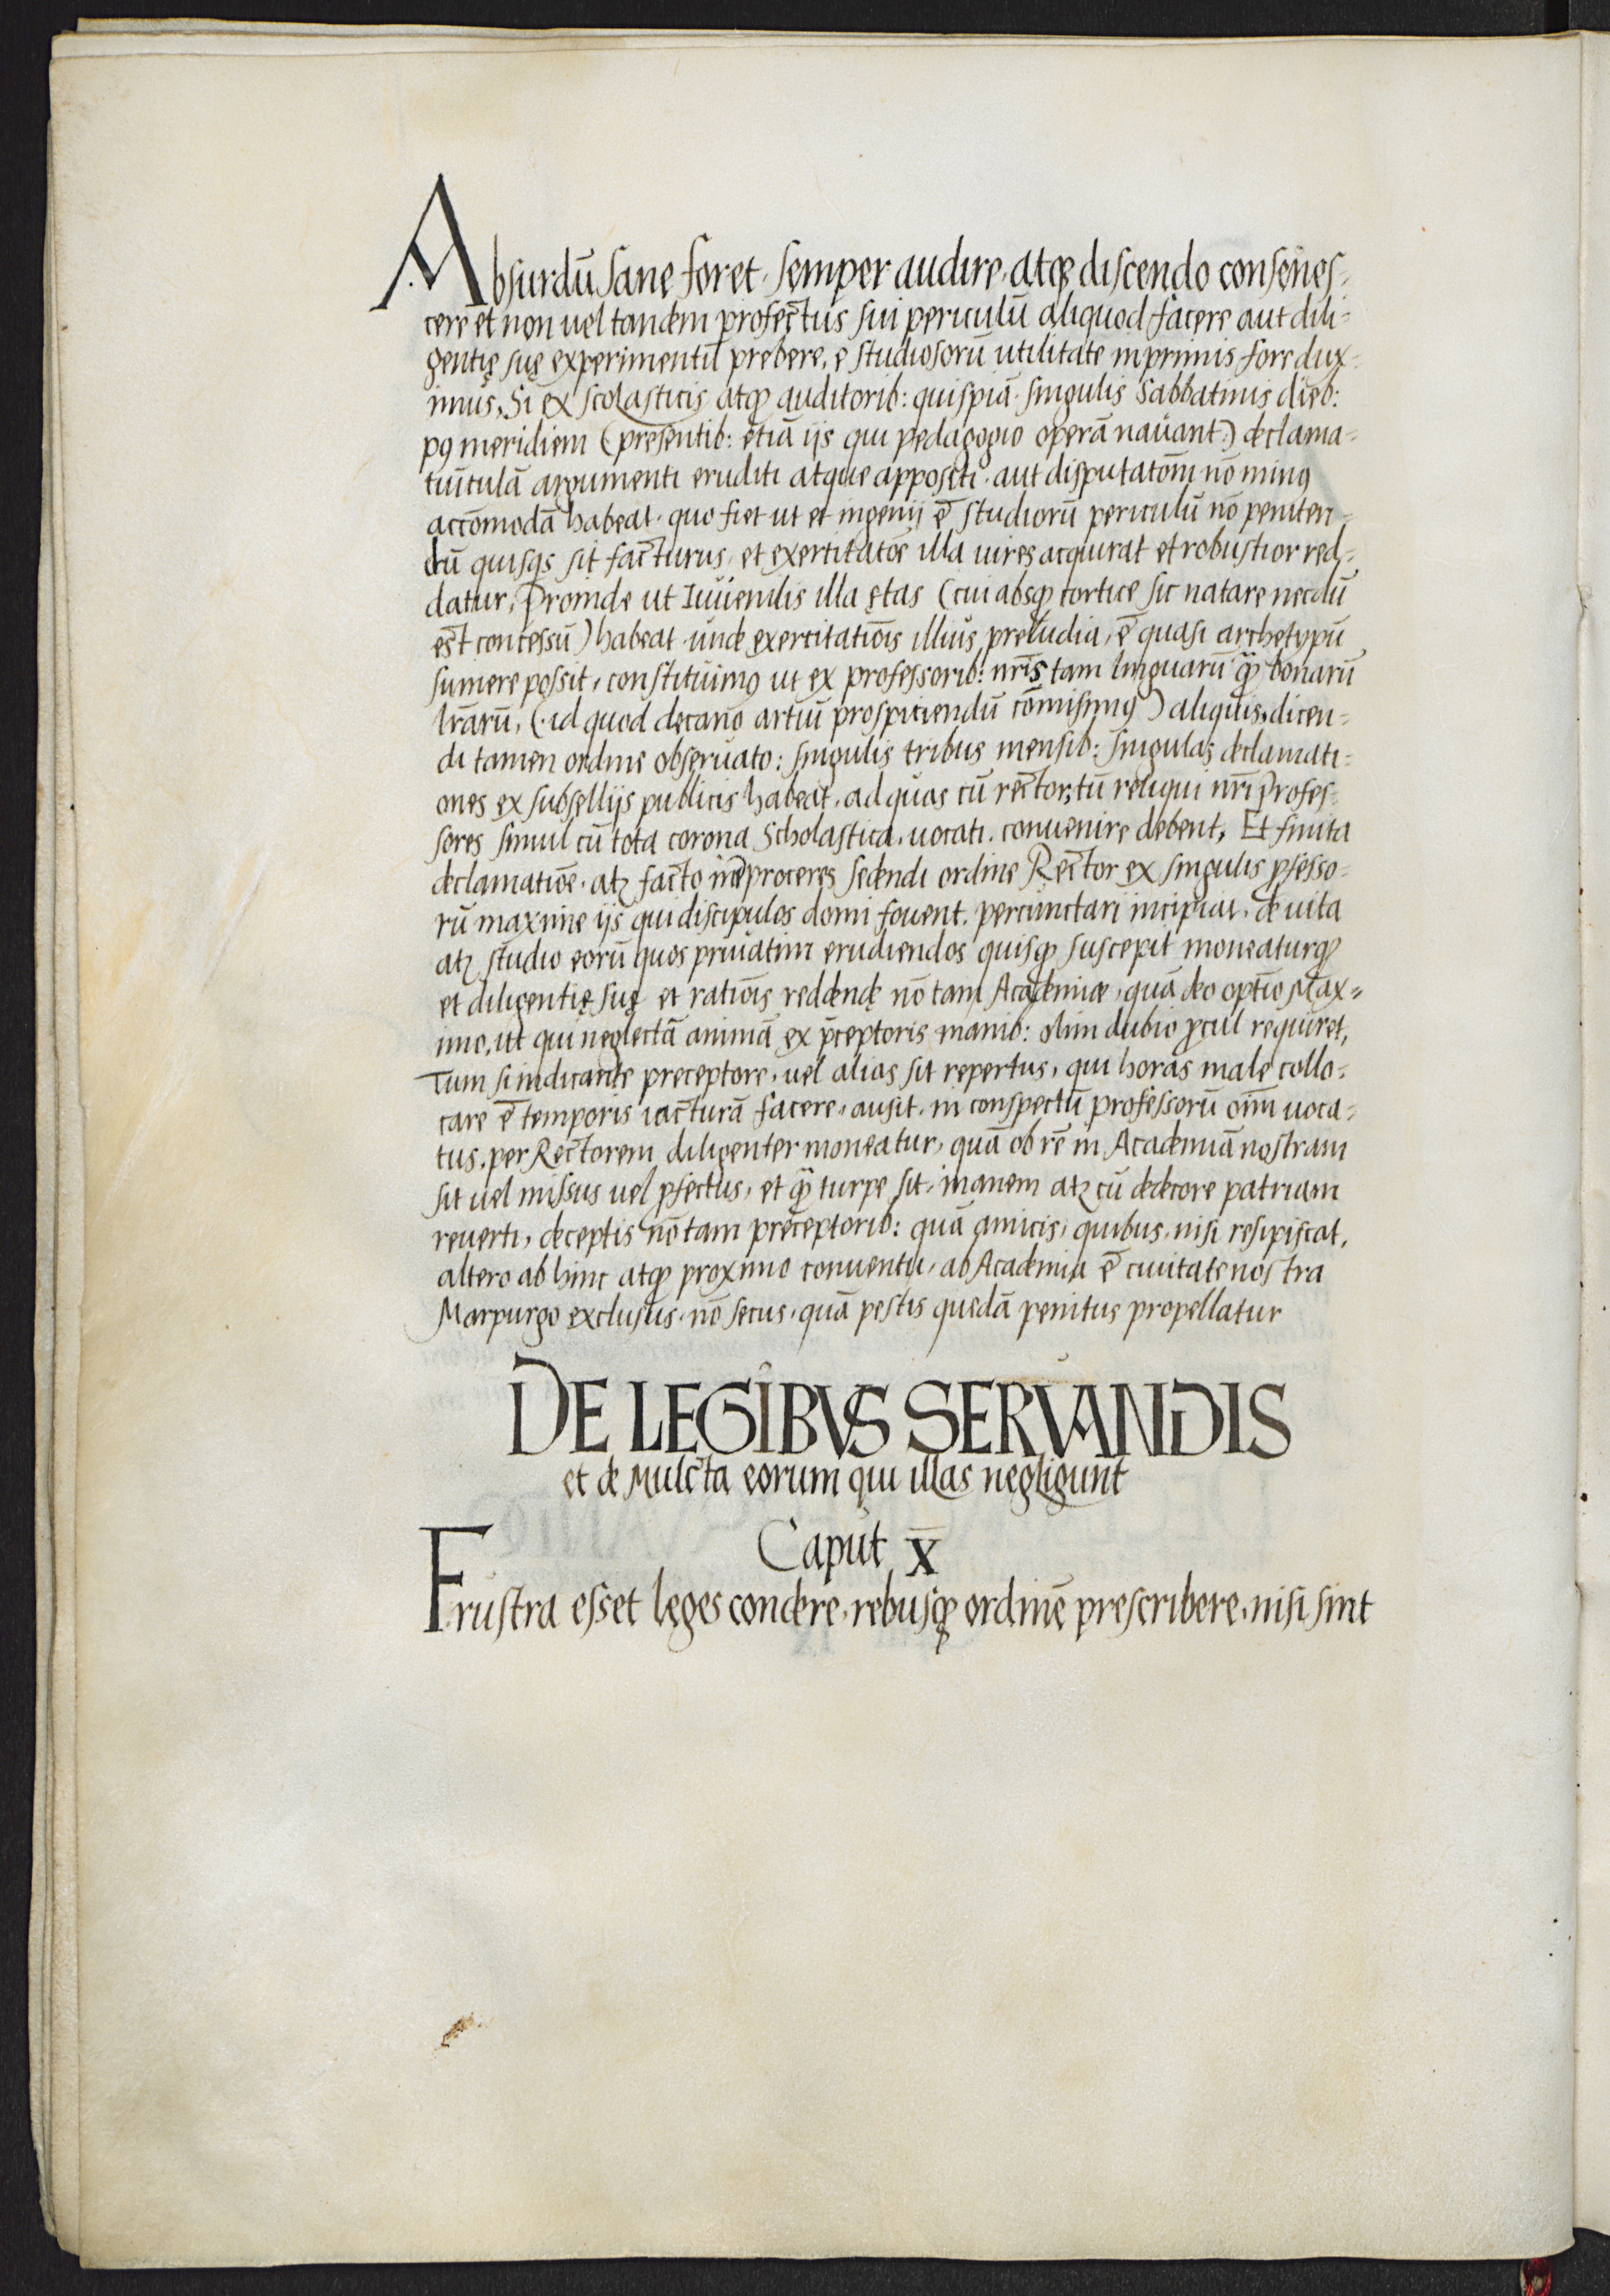 Absurdū sane foret, semper audire, atq̃ discendo consenes-
cere et non uel tandem profectus sui periculū aliquod facere aut dili-
gentię suę experimentū prebere, e studiosorū utilitate inprimis fore dux-
imus, Si ex scolasticis atq̃ auditorib: quispiā singulis Sabbatinis dieb:
pꝯ meridiem (presentib: etiā ijs qui pedagogio operā nauant:) declama-
tiūculā argumenti eruditi atque appositi, aut disputatōm nō minꝯ
accōmodā habeat, quo fiet ut et ingenij &̄ studiorū periculū nō peniten-
dū quisqs sit facturus, et exercitatōe illa uires acquirat et robustior red-
datur, Proinde ut Iuuenilis illa ętas (cui absq̃ cortice sic natare necdū
est concessū) habeat unde exercitatiōis illius preludia, &̄ quasi archetypū
sumere possit, constituimꝯ ut ex professorib: nr̄is tam linguarū q̃ bonarū
lr̄arū, (id quod decano artiū prospiciendū cōmisimꝯ) aliquis, dicen-
di tamen ordine obseruato: singulis tribus mensib: singulas declamati-
ones ex subsellijs publicis habeat, ad quas cū rector, tū reliqui nr̄i Profes-
sores simul cū tota corona Scholastica, uocati, conuenire debent, Et finita
declamatiōe, atꝫ facto īter proceres sedendi ordine Rector ex singulis ꝓfesso-
rū maxime ijs qui discipulos domi fouent, percunctari incipiat, de uita
atꝫ studio eorū quos priuatim erudiendos quisq̃ suscepit moneaturq̃
et diligentię suę et ratiōis reddendę nō tam Academiæ, quā deo optīo Max-
imo, ut qui neglectā animā ex p̄ceptoris manib: olim dubio ꝓcul requiret,
Tum si indicante preceptore, uel alias sit repertus, qui horas male collo-
care &̄ temporis iacturā facere, ausit, in conspectū professorū oīm uoca-
tus, per Rectorem diligenter moneatur, quā ob rē in Academiā nostram
sit uel missus uel ꝓfectus, et q̃ turpe sit, inanem atꝫ cū dedecore patriam
reuerti, deceptis nō tam preceptorib: quā amicis, quibus, nisi resipiscat,
altero ab hinc atq̃ proximo conuentu, ab Academia &̄ ciuitate nostra
Marpurgo exclusus, nō secus, quā pestis quedā penitus propellatur
DE LEGIBVS SERVANDIS
et de Mulcta eorum qui illas negligunt
Caput X
Frustra esset leges condere, rebusq̃ ordinē prescribere, nisi sint